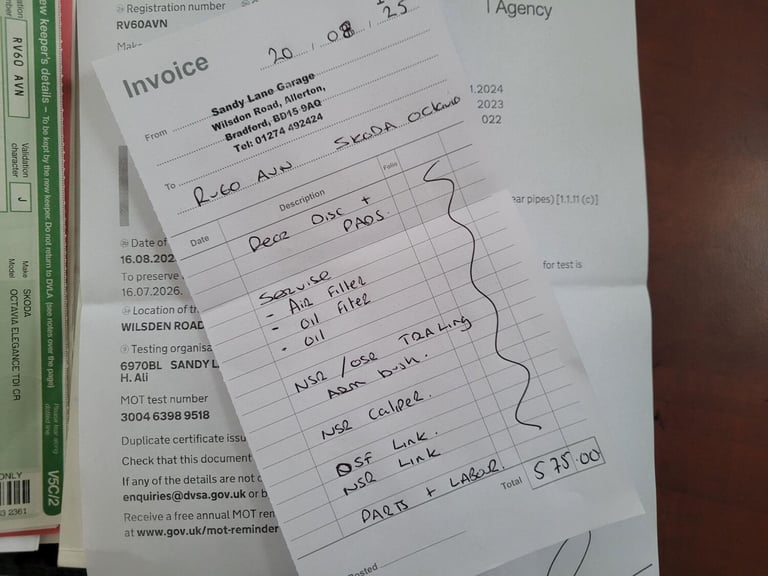 Registration number
RV60AVN
Agency
.2024
2023
022
ear pipes) [1.1.11 (c)]
for test is
Date of
16.08.202
To preserve
16.07.2026.
Location of th
WILSDEN ROAD
Testing organisa
6970BL SANDY L
H. Ali
MOT test number
3004 6398 9518
Duplicate certificate issu
Check that this document
If any of the details are not c
enquiries@dvsa.gov.uk or b
Receive a free annual MOT rem
at www.gov.uk/mot-reminder
ew keeper's details – To be kept by the new keeper. Do not return to DVLA (see notes over the page)
RV60 AVN
Validation
character
J
Make SKODA
Model OCTAVIA ELEGANCE TDI CR
Please tear along
dotted line.
V5C/2
ONLY
Invoice
20 08 25
From
Sandy Lane Garage
Wilsdon Road, Allerton,
Bradford, BD15 9AQ
Tel: 01274 492424
To RV60 AVN SKODA OCTAVIA
Date Description Folio
Rear Disc +
PADS.
Servise
- Air Filter
- Oil Filter
- Oil
NSR / OSR TRALing
ARM bush.
NSR Caliper.
OSF Link.
NSR Link
PARTS + LABOR.
Total 575.00
Posted